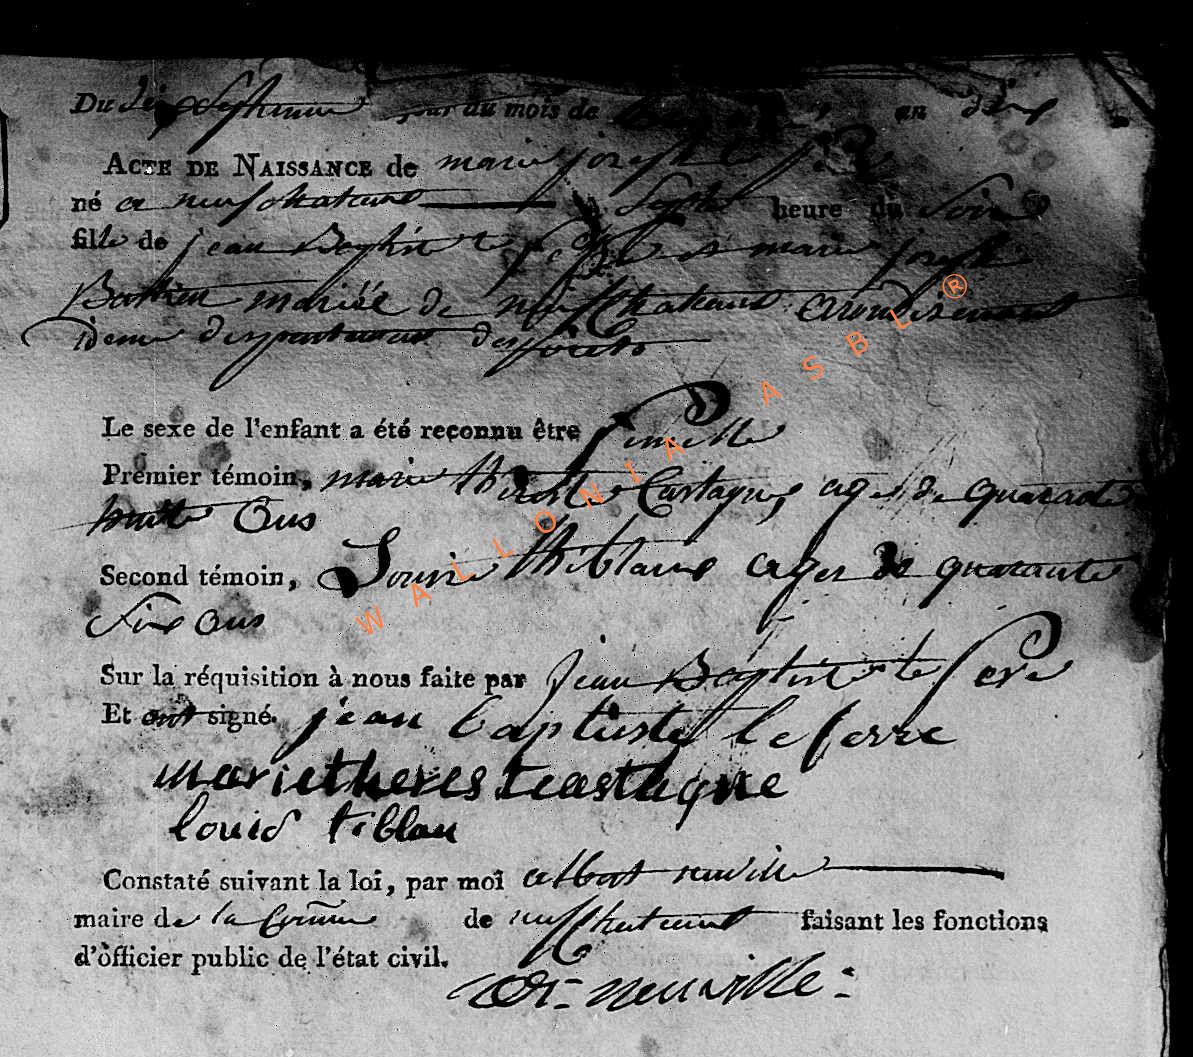 Du dix Septieme jour du mois de an dix
ACTE DE NAISSANCE de marie joseph
né a neufchateaux Sept heure du Soire
fille de jean Baptiste et marie joseph
Bastien mariéé de neufchateaux arondisement
idem departement des forets
Le sexe de l'enfant a été reconnu être femelle
Premier témoin, marie therese Castagne agé de quarante
huite Ans
Second témoin, Louis thiblaux agez de quarante
Six Ans
Sur la réquisition à nous faite par Jean Baptiste le fere
Et ont signé. jean baptiste le ferre
marietheres castagne
louis tiblau
Constaté suivant la loi, par moi albert neuville
maire de la Comune de neufchateaux faisant les fonctions
d'officier public de l'état civil.
neuville
WALLONIA ASBL ®